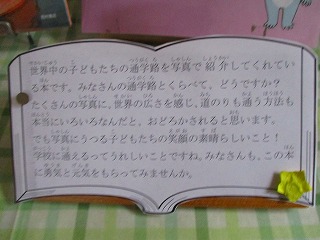 世界中の子どもたちの通学路を写真で紹介してくれてい
る本です。みなさんの通学路とくらべて、どうですか？
たくさんの写真に、世界の広さを感じ、道のりも通う方法も
本当にいろいろなんだと、おどろかされると思います。
でも写真にうつる子どもたちの笑顔の素晴らしいこと！
学校に通えるってうれしいことですね。みなさんも、この本
に勇気と元気をもらってみませんか。